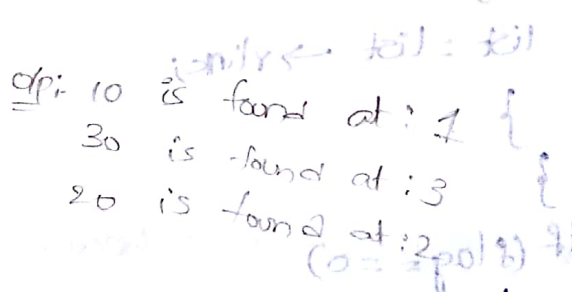 o/p:- 10 is found at : 1
30 is found at : 3
20 is found at : 2